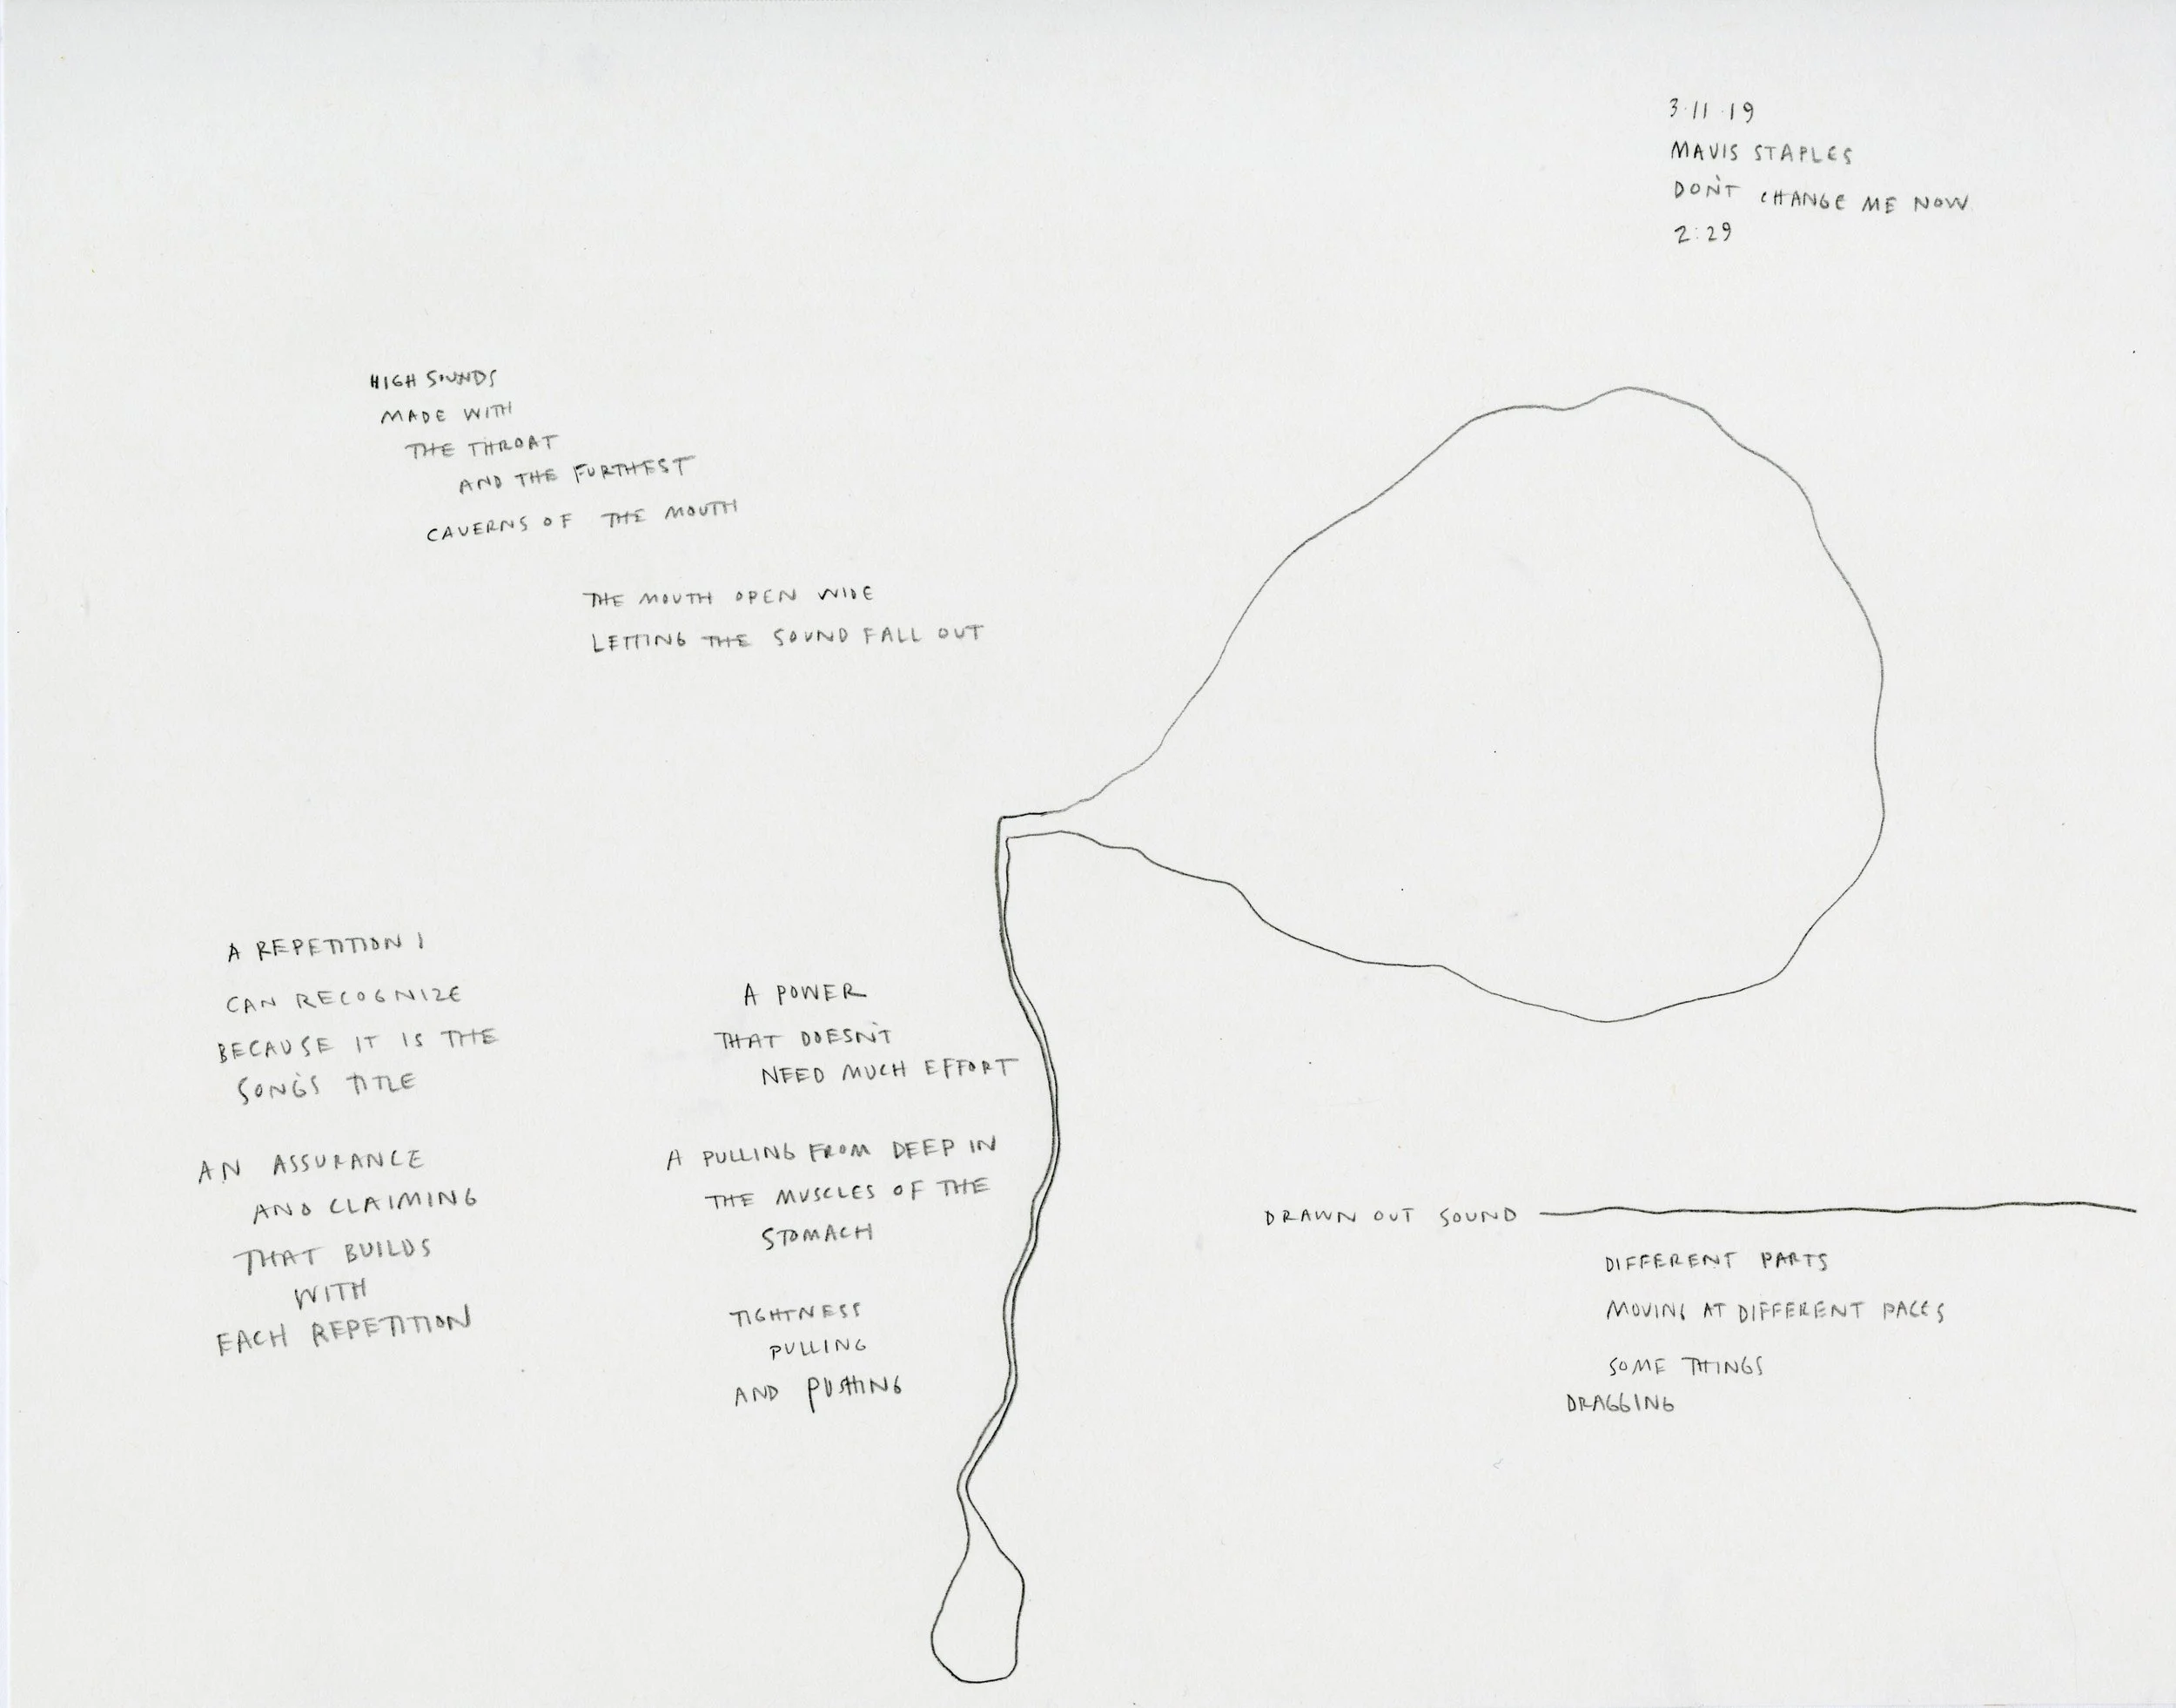 3·11·19
MAVIS STAPLES
DON'T CHANGE ME NOW
2:29
HIGH SOUNDS
MADE WITH
THE THROAT
AND THE FURTHEST
CAVERNS OF THE MOUTH
THE MOUTH OPEN WIDE
LETTING THE SOUND FALL OUT
A REPETITION I
CAN RECOGNIZE
BECAUSE IT IS THE
SONG'S TITLE
AN ASSURANCE
AND CLAIMING
THAT BUILDS
WITH
EACH REPETITION
A POWER
THAT DOESN'T
NEED MUCH EFFORT
A PULLING FROM DEEP IN
THE MUSCLES OF THE
STOMACH
TIGHTNESS
PULLING
AND PUSHING
DRAWN OUT SOUND
DIFFERENT PARTS
MOVING AT DIFFERENT PACES
SOME THINGS
DRAGGING